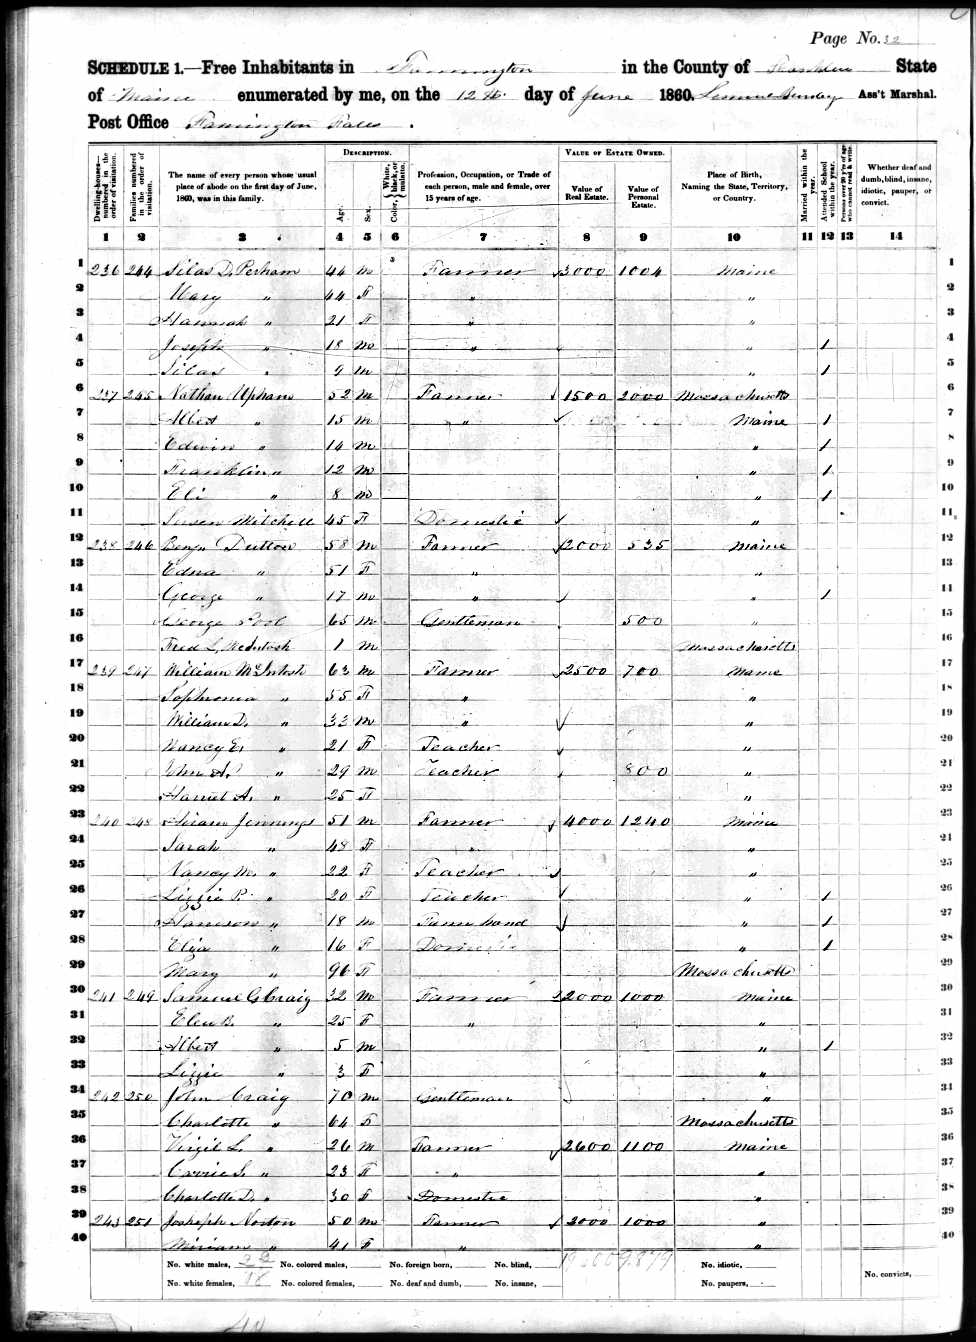 Page No. 32
SCHEDULE 1.—Free Inhabitants in Farmington in the County of Franklin State
of Maine enumerated by me, on the 12th day of June 1860. Ass't Marshal.
Post Office Farmington Falls.
DESCRIPTION. VALUE OF ESTATE OWNED.
Dwelling-houses—numbered in the order of visitation. Families numbered in the order of visitation. The name of every person whose usual place of abode on the first day of June, 1860, was in this family. Age. Sex. Color, White, black, or mulatto. Profession, Occupation, or Trade of each person, male and female, over 15 years of age. Value of Real Estate. Value of Personal Estate. Place of Birth, Naming the State, Territory, or Country. Married within the year. Attended School within the year. Persons over 20 y'rs of age who cannot read & write. Whether deaf and dumb, blind, insane, idiotic, pauper, or convict.
1 2 3 4 5 6 7 8 9 10 11 12 13 14
1 236 244 Silas D. Perham 44 m Farmer 3000 1004 Maine 1
2 Mary " 44 F " " 2
3 Hannah " 21 F " " 3
4 Joseph " 18 m " " 1 4
5 Silas " 9 m " 1 5
6 237 245 Nathan Upham 52 m Farmer 1500 2000 Massachusetts 6
7 Albert " 15 m " Maine 1 7
8 Edwin " 14 m " 1 8
9 Franklin " 12 m " 1 9
10 Eli " 8 m " 1 10
11 Susan Mitchell 45 F Domestic " 11
12 238 246 Benj. Dutton 58 m Farmer 2000 535 Maine 12
13 Edna " 51 F " " 13
14 George " 17 m " " 1 14
15 George Pool 65 m Gentleman 500 " 15
16 Fred L. McIntosh 1 m Massachusetts 16
17 239 247 William McIntosh 63 m Farmer 2500 700 Maine 17
18 Sophronia " 55 F " " 18
19 William D. " 33 m " " 19
20 Nancy E. " 21 F Teacher " 20
21 John A. " 29 m Teacher 800 " 21
22 Harriet A. " 25 F " 22
23 240 248 Hiram Jennings 51 m Farmer 4000 1240 Maine 23
24 Sarah " 48 F " " 24
25 Nancy M. " 22 F Teacher " 25
26 Lizzie P. " 20 F Teacher " 1 26
27 Harrison " 18 m Farm hand " 1 27
28 Eliza " 16 F Domestic " 1 28
29 Mary " 96 F Massachusetts 29
30 241 249 Samuel G Craig 32 m Farmer 2000 1000 Maine 30
31 Ellen B. " 25 F " " 31
32 Albert " 5 m " 1 32
33 Lizzie " 3 F " 33
34 242 250 John Craig 70 m Gentleman " 34
35 Charlotte " 64 F Massachusetts 35
36 Virgil L. " 26 m Farmer 2600 1100 Maine 36
37 Carrie S. " 23 F " " 37
38 Charlotte D. " 30 F Domestic " 38
39 243 251 Joseph Norton 50 m Farmer 2000 1000 " 39
40 Miriam " 41 F " " 40
No. white males, No. colored males, No. foreign born, No. blind, No. idiotic,
No. white females, No. colored females, No. deaf and dumb, No. insane, No. paupers, No. convicts,